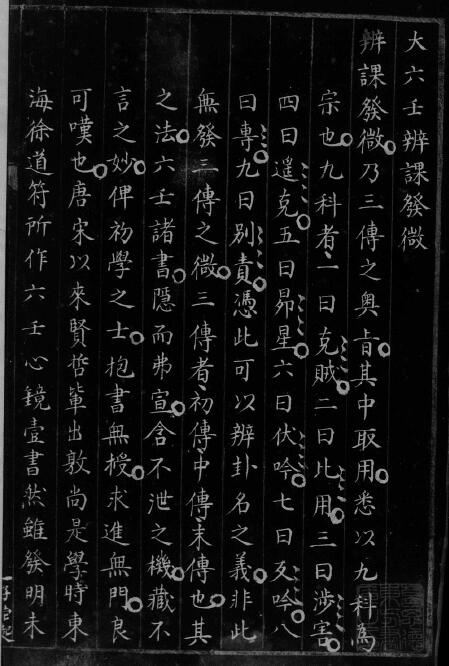 大六壬辨課發微
辨課發微乃三傳之奧旨其中取用悉以九科為
宗也九科者一曰克賊二曰比用三曰涉害
四曰遥克五曰昴星六曰伏吟七曰反吟八
曰專九曰別責憑此可以辨卦名之義非此
無發三傳之微三傳者初傳中傳末傳也其
之法六壬諸書隱而弗宣含不泄之機藏不
言之妙俾初學之士抱書無授求進無門良
可嘆也唐宋以來賢哲輩出敦尚是學時東
海徐道符所作六壬心鏡壹書然雖發明未